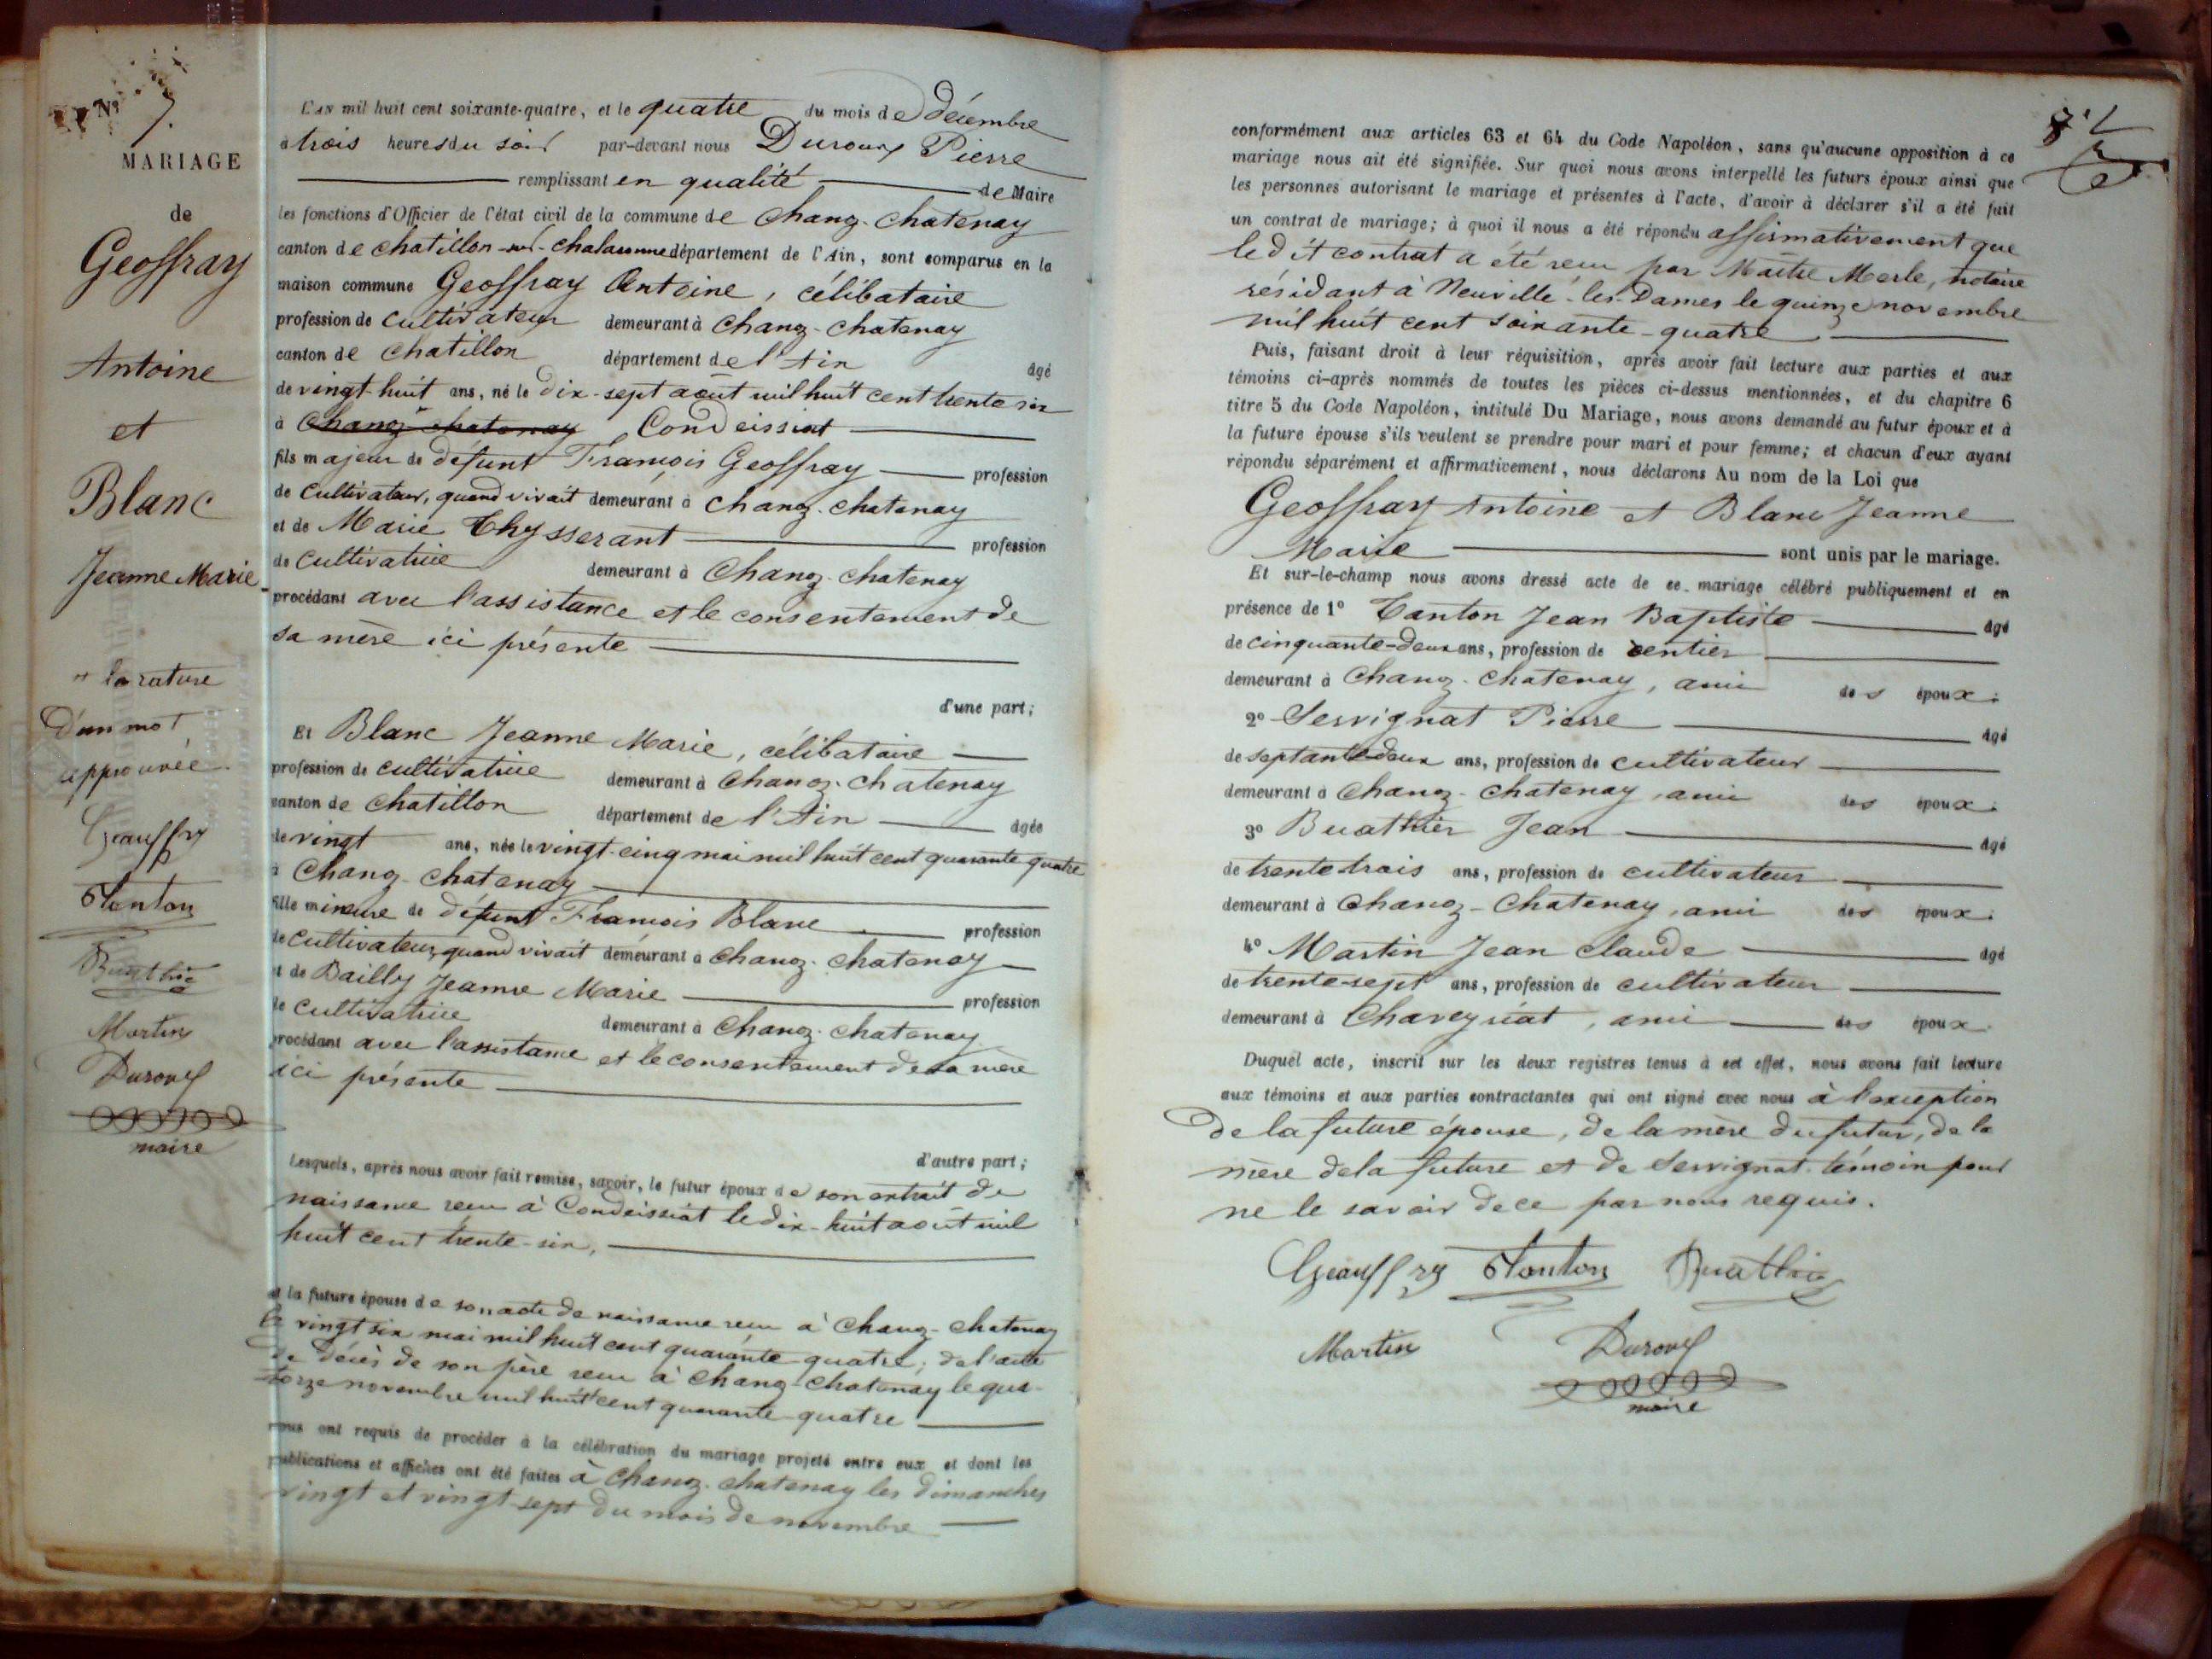 N° 7.
MARIAGE
de
Geoffray
Antoine
et
Blanc
Jeanne Marie
la rature
d'un mot
approuvée.
Geauffry
Tanton
Buathie
Martin
Duroux
maire
L'AN mil huit cent soixante-quatre, et le quatre du mois de décembre
à trois heures du soir par-devant nous Duroux Pierre
remplissant en qualité de Maire
les fonctions d'Officier de l'état civil de la commune de Chanoz-Chatenay
canton de Chatillon-sur-Chalaronne département de l'Ain, sont comparus en la
maison commune Geoffray Antoine, célibataire
profession de cultivateur demeurant à Chanoz-Chatenay
canton de Chatillon département de l'Ain âgé
de vingt-huit ans, né le dix-sept août mil huit cent trente six
à Chanoz-Chatenay Condeissiat
fils majeur de défunt François Geoffray profession
de cultivateur, quand vivait demeurant à Chanoz-Chatenay
et de Marie Thysserant profession
de cultivatrice demeurant à Chanoz-Chatenay
procédant avec l'assistance et le consentement de
sa mère ici présente
d'une part;
Et Blanc Jeanne Marie, célibataire
profession de cultivatrice demeurant à Chanoz-Chatenay
canton de Chatillon département de l'Ain âgée
de vingt ans, née le vingt-cinq mai mil huit cent quarante quatre
à Chanoz-Chatenay
fille mineure de défunt François Blanc profession
de cultivateur, quand vivait demeurant à Chanoz-Chatenay
et de Bailly Jeanne Marie profession
de cultivatrice demeurant à Chanoz-Chatenay
procédant avec l'assistance et le consentement de sa mère
ici présente
d'autre part;
Lesquels, après nous avoir fait remise, savoir, le futur époux de son extrait de
naissance reçu à Condeissiat le dix-huit août mil
huit cent trente-six,
et la future épouse de son acte de naissance reçu à Chanoz-Chatenay
le vingt six mai mil huit cent quarante quatre; de l'acte
de décès de son père reçu à Chanoz-Chatenay le qua-
torze novembre mil huit cent quarante-quatre
nous ont requis de procéder à la célébration du mariage projeté entre eux et dont les
publications et affiches ont été faites à Chanoz-Chatenay les dimanches
vingt et vingt-sept du mois de novembre
conformément aux articles 63 et 64 du Code Napoléon, sans qu'aucune opposition à ce
mariage nous ait été signifiée. Sur quoi nous avons interpellé les futurs époux ainsi que
les personnes autorisant le mariage et présentes à l'acte, d'avoir à déclarer s'il a été fait
un contrat de mariage; à quoi il nous a été répondu affirmativement que
ledit contrat a été reçu par Maître Merle, notaire
résidant à Neuville-les-Dames le quinze novembre
mil huit cent soixante-quatre
Puis, faisant droit à leur réquisition, après avoir fait lecture aux parties et aux
témoins ci-après nommés de toutes les pièces ci-dessus mentionnées, et du chapitre 6
titre 5 du Code Napoléon, intitulé Du Mariage, nous avons demandé au futur époux et à
la future épouse s'ils veulent se prendre pour mari et pour femme; et chacun d'eux ayant
répondu séparément et affirmativement, nous déclarons Au nom de la Loi que
Geoffray Antoine et Blanc Jeanne
Marie sont unis par le mariage.
Et sur-le-champ nous avons dressé acte de ce mariage célébré publiquement et en
présence de 1° Tanton Jean Baptiste âgé
de cinquante-deux ans, profession de rentier
demeurant à Chanoz-Chatenay, ami des époux.
2° Servignat Pierre âgé
de septante-deux ans, profession de cultivateur
demeurant à Chanoz-Chatenay, ami des époux.
3° Buathier Jean âgé
de trente trois ans, profession de cultivateur
demeurant à Chanoz-Chatenay, ami des époux.
4° Martin Jean Claude âgé
de trente-sept ans, profession de cultivateur
demeurant à Chaveyriat, ami des époux.
Duquel acte, inscrit sur les deux registres tenus à cet effet, nous avons fait lecture
aux témoins et aux parties contractantes qui ont signé avec nous à l'exception
de la future épouse, de la mère du futur, de la
mère de la future et de Servignat témoin pour
ne le savoir de ce par nous requis.
Geauffry Tanton Buathie
Martin Duroux
maire